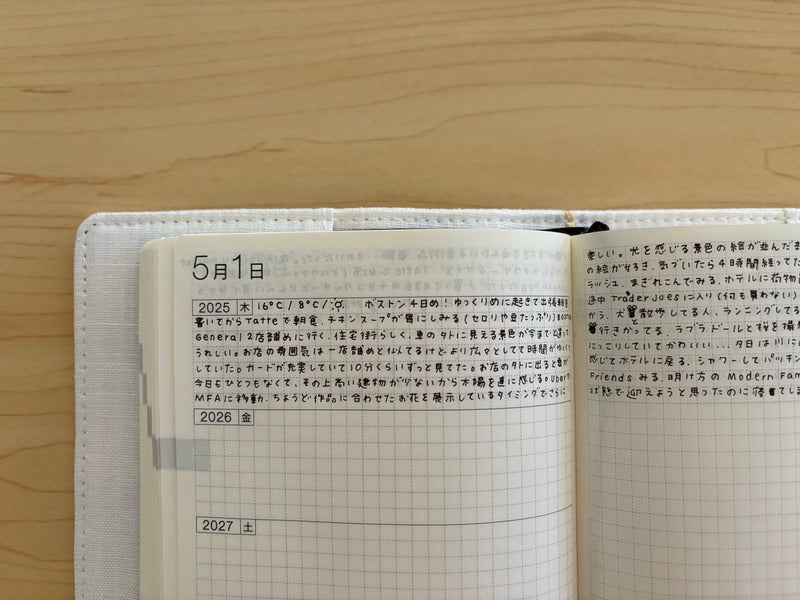 5月1日
2025 木 16℃ / 8℃ / ボストン4日め！ゆっくりめに起きて出張
書いてからTatteで朝食。チキンスープが胃にしみる(セロリや豆たっぷり)
General 2店舗めに行く。住宅街らしく、車の外に見える景色が今までと
うれしい。お店の雰囲気は一店舗めと似てるけどより広々としてて時間がゆっくり
していた。カードが充実していて10分くらいずっと見てた。お店の外に出ると
今日もひとつもなくて、その上高い建物が少ないから太陽を近に感じる。Uber
MFAに移動。ちょうど作品に合わせたお花を展示しているタイミングでさらに
2026 金
2027 土
楽しい。光を感じる景色の絵が並んだ
の絵が好き。気づいたら4時間経ってた
ラッシュ、まぎれこんでみる。ホテルに荷物
途中 Trader Joesに入り(何も買わない)
から、犬 散歩してる人、ランニングしてる
行きかってる。ラブラドールと桜を撮
にっこりしていてかわいい...夕日は川に
感じてホテルに戻る。シャワーしてパッキン
Friendsみる。明け方のModern Fam
状態で迎えようと思ったのに寝